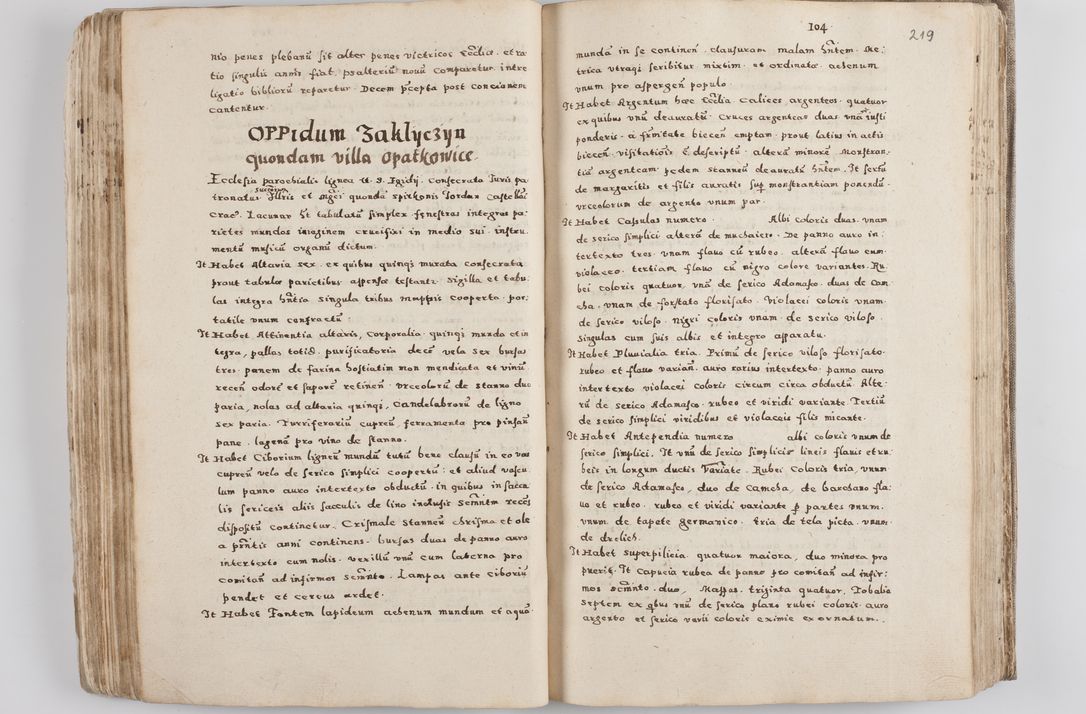 nis penes plebanũ sit alter penes victricos Eccĺiæ. et ra
tio singulis annis fiat. psalteriũ nouũ comparetur. intre
ligatio bibliorũ reparetur. Decem p̃cepta post concionem
cantentur.
OPPidum Zaklyczyn
quondam villa Opatkowice.
Ecclesia parochialis lignea tt. S. Egidij. consecrata Iuris pa:
tronatus Illris et Mg̃ci quondã Spitkonis Jordan Castell
crac̃. Lacunar et tabulatũ simplex. fenestras integras pa:
rietes mundos imaginem crucifixi in medio sui. instru
mentũ musicũ organũ dictum.
It Habet Altaria sex. ex quibus quinqȝ murata consecrata
prout tabulæ parietibus appensæ testantr̃. Sigilla et tabu:
las integra hñtia singula tribus mappis cooperta. por:
tatile vnum confractũ.
It Habet Attinentia altaris, Corporalia. quinqȝ munda et in
tegra, pallas totid. purificatoria decẽ vela sex bursas
tres. panem de farina hostiatim non mendicata et vinũ
recen odorẽ et saporẽ retineñ. vrceolorũ de stanno duo
paria, nolas ad altaria quinqȝ, Candelabrorũ de ligno
sex paria. Turriferariũ cupreũ, ferramenta pro pinsañ
pane. lagenã pro vino de stanno.
It Habet Ciborium ligneũ mundũ tutũ bene clausũ in eo vas
cupreũ velo de serico simplici coopertũ: et aliud vascu
lum panno auro intertexto obductũ. in quibus in saccu
lis sericeis aliis sacculis de lino inclusis Semñtm recẽs
dispositũ continetur. Crismale Stanneũ chrisma et ole
a p̃ñtis anni continens. bursas duas de panno auro
intertexto cum nolis. vexillũ vnũ cum laterna pro
comitañ ad infirmos semñto. Lampas ante Ciboriũ
pendet et cereus ardet.
It Habet Fontem lapideum aehenum mundum et aquã
104
219
mundã in se contineñ. clausuram malam hñtem. Me:
trica vtraqȝ scribitur mixtim. et ordinatæ. aehenum
vnum pro aspergeñ populo.
It Habet Argentum hæc Eccĺia Calices argenteos quatuor
ex quibus vnũ deauratũ. Cruces argenteas duas vnã iusti
ponderis. a frñitate bieceñ. emptam. prout latius in actis
bieceñ. visitatiõis ẽ descriptũ. alterã minorẽ. Monstran:
tiã argenteam pedem stanneũ deauratũ hñtem. It sertũ
de margaritis et filis auratis sup monstrantiam ponendũ.
vrceolorum de argento vnum par.
It Habet Casulas numero Albi coloris duas. vnam
de serico simplici alterã de muchaiero. De panno auro in:
tertexto tres vnam flauo cũ rubeo. alterã flauo cum
violaceo. tertiam flauo cũ nigro colore variantes. Ru
bei coloris quatuor. vnã de serico Adamasco. duas de Cam
cha. vnam de forstato florisato. Violacei coloris vnam.
de serico viloso. Nigri coloris vnam. de Serico viloso.
Singulas cum suis albis et integro apparatu.
It Habet Pluuialia tria. Primũ de serico viloso florisato.
rubeo et flauo variañ. auro rarius intertexto. panno auro
intertexto violacei coloris circum circa obductũ. Alte:
rũ de serico Adamasco. rubeo et viridi variante. Tertiũ
de serico simplici viridibus et violaceis filis micante.
It Habet Antependia numero albi coloris vnum de
serico simplici. It vnũ de serico simplicis lineis flauis et ru
beis in longum ductis variate. Rubei Coloris tria, vnum
de serico Adamasco, duo de Camcha, de barchano fla:
uo et rubeo. rubeo et viridi variante p partes vnum.
vnum de tapete germanico. tria de tela picta. vnum
de drelich.
It Habet superpilicia quatuor maiora, duo minora pro
pueris. It Capucia rubea de panno pro comitañ ad infir:
mos semñto. duo. Mappas. triginta quatuor. Tobalia
Septem ex qbus vnũ de serico plano rubei coloris. auro
argento et serico varii coloris eximie exornatum.